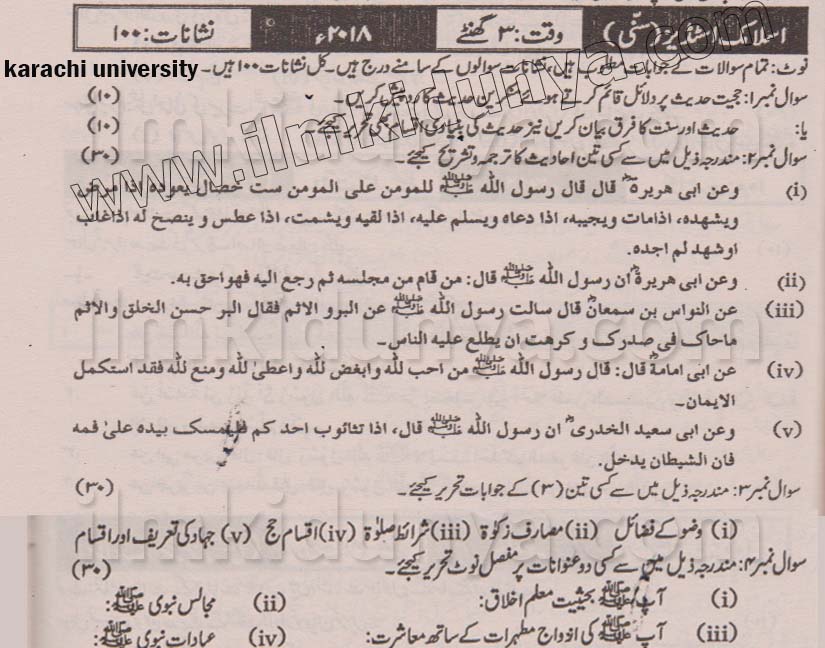 اسلامک اسٹڈیز (سنّی) وقت: ۳ گھنٹے ۲۰۱۸ء نشانات: ۱۰۰
karachi university
نوٹ: تمام سوالات کے جوابات مطلوب ہیں، نشانات سوالوں کے سامنے درج ہیں۔ کل نشانات ۱۰۰ ہیں۔
سوال نمبر۱: حجیت حدیث پر دلائل قائم کرتے ہوئے منکرین حدیث کا رد پیش کریں۔ (۱۰)
یا: حدیث اور سنت کا فرق بیان کریں نیز حدیث کی بنیادی اقسام بھی تحریر کیجئے۔ (۱۰)
سوال نمبر۲: مندرجہ ذیل میں سے کسی تین احادیث کا ترجمہ و تشریح کیجئے۔ (۳۰)
(i) وعن ابی ھریرۃؓ قال قال رسول اللہ ﷺ للمومن علی المومن ست خصال یعودہ اذا مرض
ویشھدہ، اذامات ویجیبہ، اذا دعاہ ویسلم علیہ، اذا لقیہ ویشمت، اذا عطس و ینصح لہ اذاغاب
اوشھد لم اجدہ۔
(ii) وعن ابی ھریرۃؓ ان رسول اللہ ﷺ قال: من قام من مجلسہ ثم رجع الیہ فھواحق بہ۔
(iii) عن النواس بن سمعانؓ قال سالت رسول اللہ ﷺ عن البرو الاثم فقال البر حسن الخلق والاثم
ماحاک فی صدرک و کرھت ان یطلع علیہ الناس۔
(iv) عن ابی امامۃؓ قال: قال رسول اللہ ﷺ من احب للہ وابغض للہ واعطیٰ للہ ومنع للہ فقد استکمل
الایمان۔
(v) وعن ابی سعید الخدریؓ ان رسول اللہ ﷺ قال، اذا تثائوب احد کم فلیمسک بیدہ علیٰ فمہ
فان الشیطان یدخل۔
سوال نمبر۳: مندرجہ ذیل میں سے کسی تین (۳) کے جوابات تحریر کیجئے۔ (۳۰)
(i) وضو کے فضائل (ii) مصارف زکوٰۃ (iii) شرائط صلوٰۃ (iv) اقسام حج (v) جہاد کی تعریف اور اقسام
سوال نمبر۴: مندرجہ ذیل میں سے کسی دو عنوانات پر مفصل نوٹ تحریر کیجئے۔ (۳۰)
(i) آپ ﷺ بحیثیت معلم اخلاق: (ii) مجالس نبوی ﷺ:
(iii) آپ ﷺ کی ازدواج مطہرات کے ساتھ معاشرت: (iv) عبادات نبوی ﷺ:
www.ilmkidunya.com
ilmkidunya.com
ilmkidunya.com
ilmkidunya.com